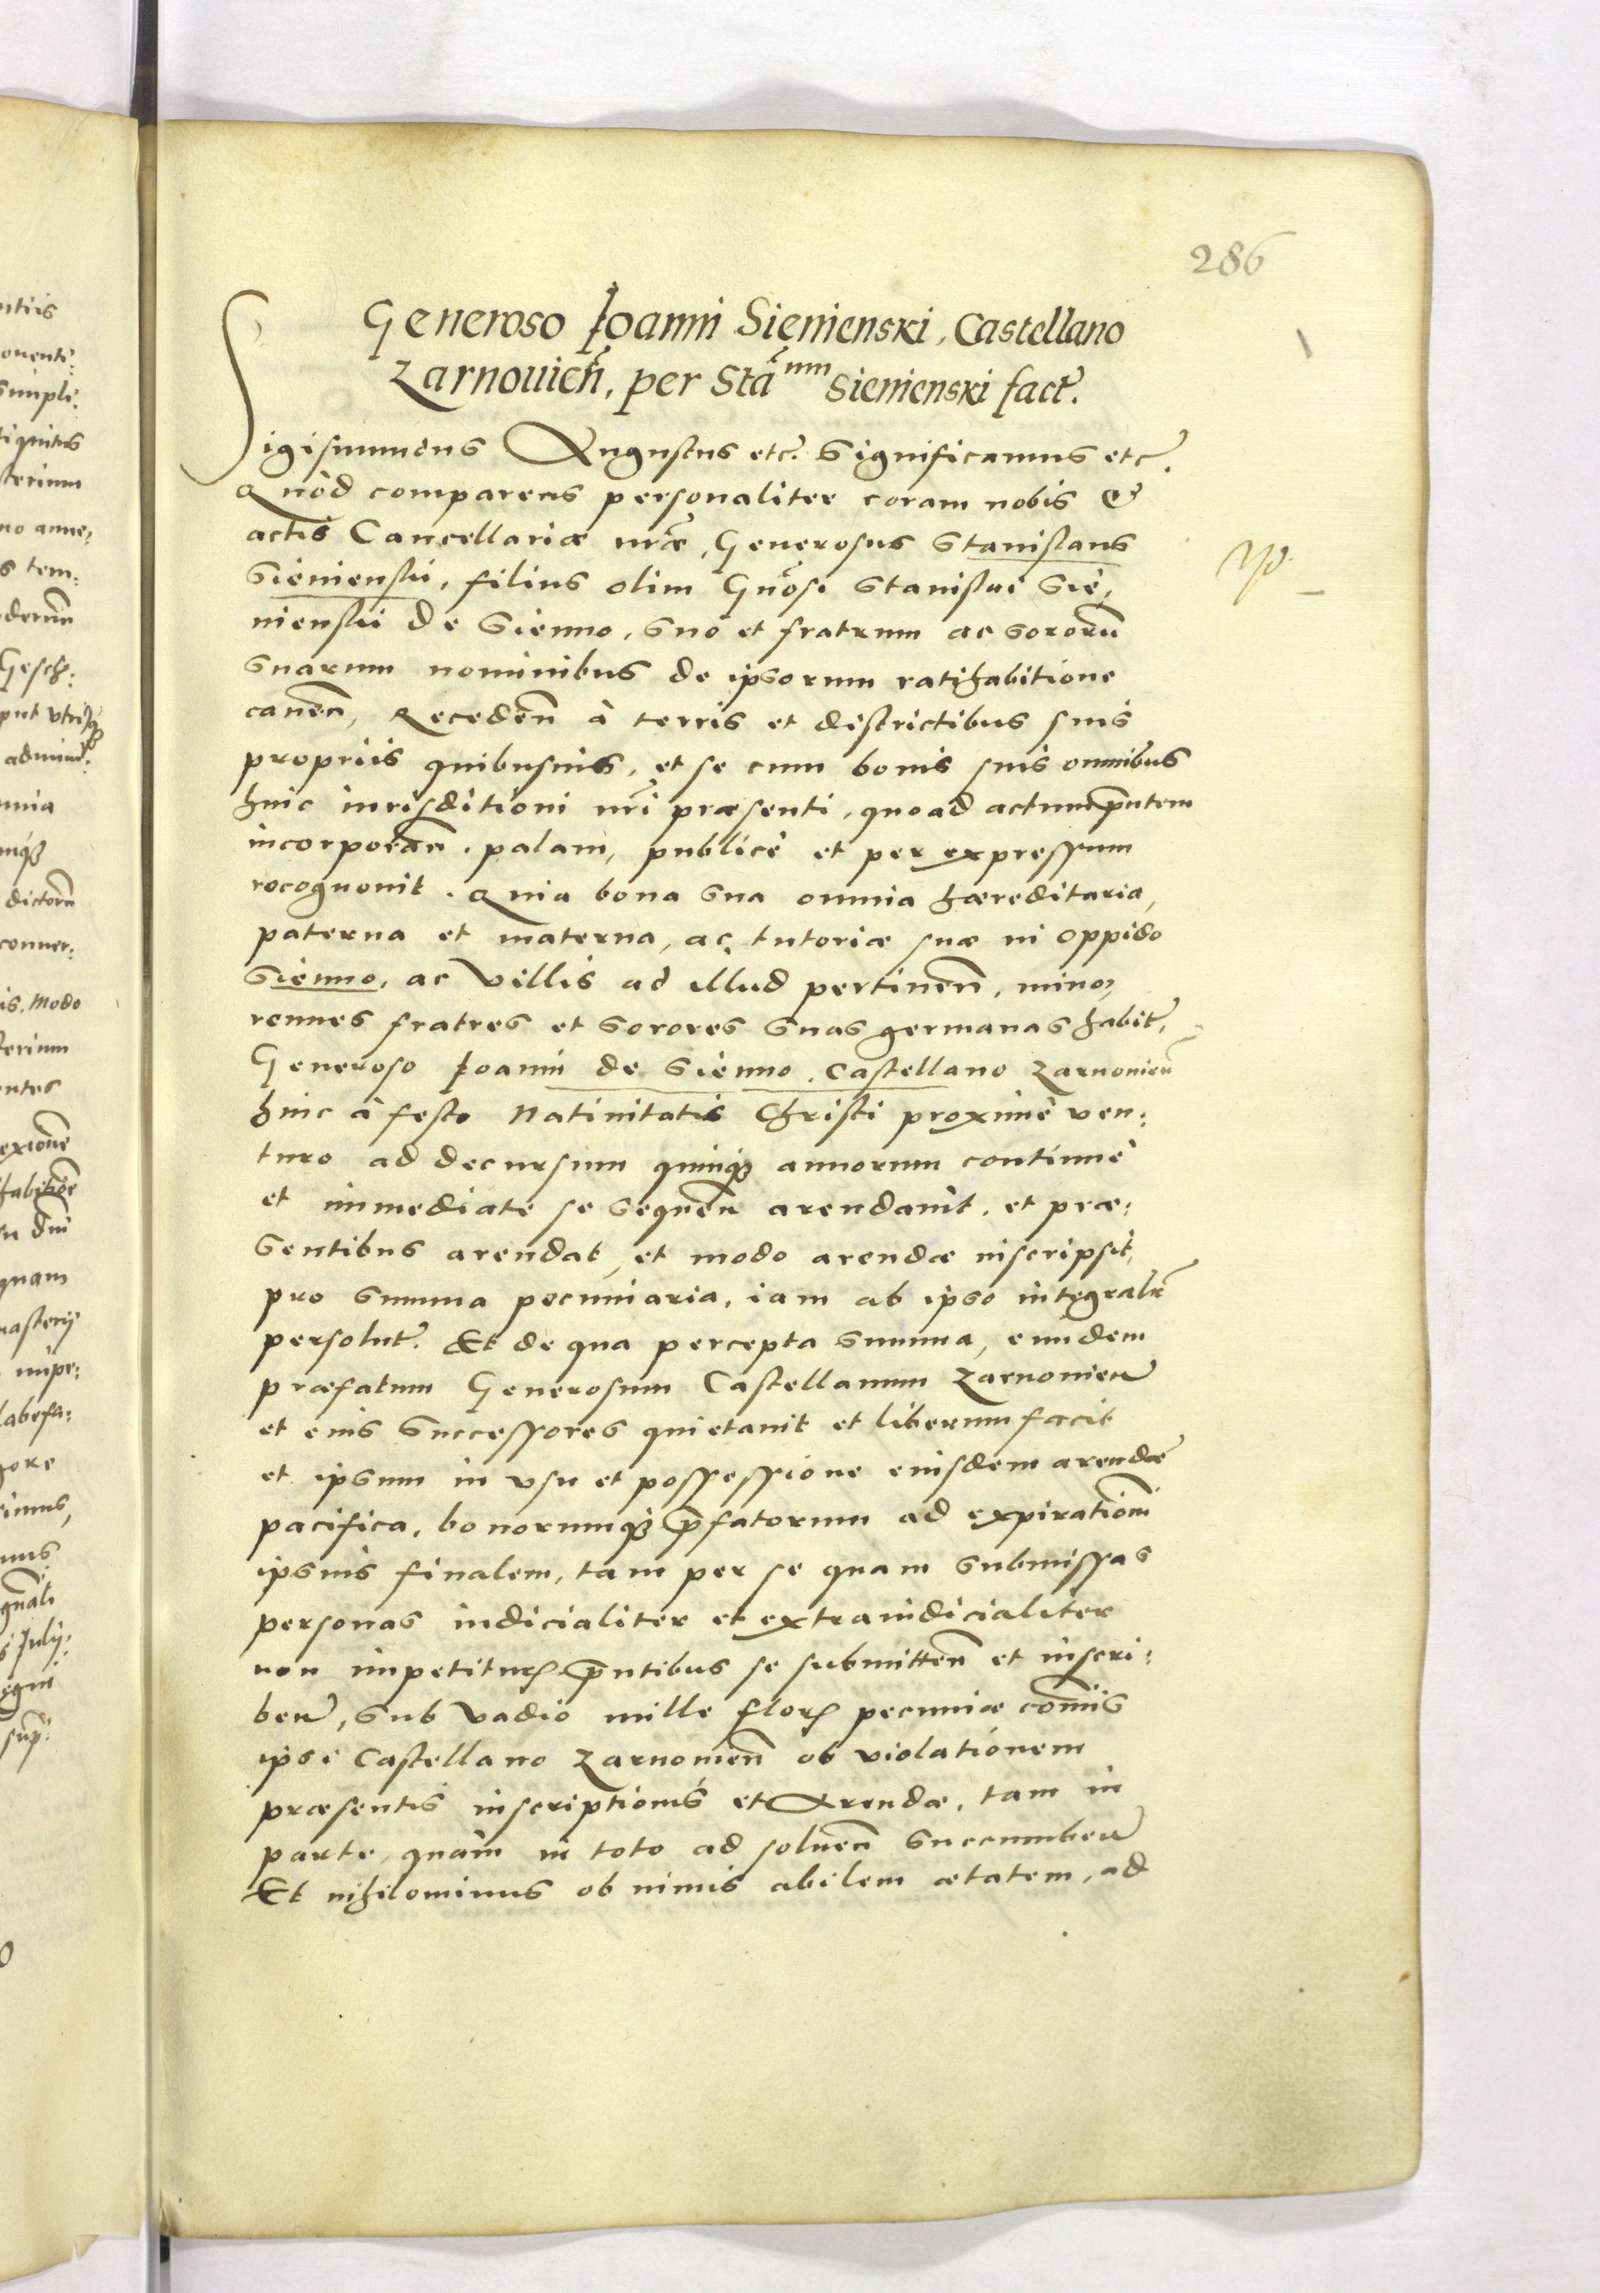 286
Generoso Joanni Sienienski, Castellano
Zarnouień, per Stãnum Sienienski fact.
Sigismundus Augustus etc. Significamus etc.
Quòd comparens personaliter coram nobis &
actis Cancellariæ nr̃æ, Generosus Stanislaus
Sienienski, filius olim Gnõsi Stanislai Sie,
nienski de Sienno, suo et fratrum ac sororũ
suarum nominibus de ipsorum ratihabitione
cauen̄, Receden̄ à terris et districtibus suis
propriis quibusuis, et se cum bonis suis omnibus
huic iurisditioni nr̃i præsenti, quoad actum p̄ntem
incorporan̄. palam, publicè et per expressum
recognouit. Quia bona sua omnia hæreditaria,
paterna et materna, ac tutoriæ suæ in oppido
Sienno, ac villis ad illud pertinen̄, mino,
rennes fratres et sorores suas germanas habit̃,
Generoso Joanni de Sienno, Castellano Zarnouien̄
hinc à festo Natiuitatis Christi proximè ven:
turo ad decursum quinq₃ annorum continuè
et immediatè se sequen̄ arendauit, et præ:
sentibus arendat, et modo arendæ inscripsit,
pro summa pecuniaria, iam ab ipso integralr̃
persolut̃. Et de qua percepta summa, eundem
præfatum Generosum Castellanum Zarnouien̄
et eius Successores quietauit et liberum facit
et ipsum in vsu et possessione eiusdem arendæ
pacifica, bonorumq₃ p̄fatorum ad expirationē
ipsius finalem, tam per se quam submissas
personas iudicialiter et extraiudicialiter
non impetitur̃, p̄ntibus se submitten̄ et inscri:
ben̄, sub vadio mille flor̃ pecuniæ com̄is
ipsi Castellano Zarnouien̄ ob violationem
præsentis inscriptionis et Arendæ, tam in
parte, quàm in toto ad soluen̄ succumben̄
Et nihilominus ob nimis abilem ætatem, ad